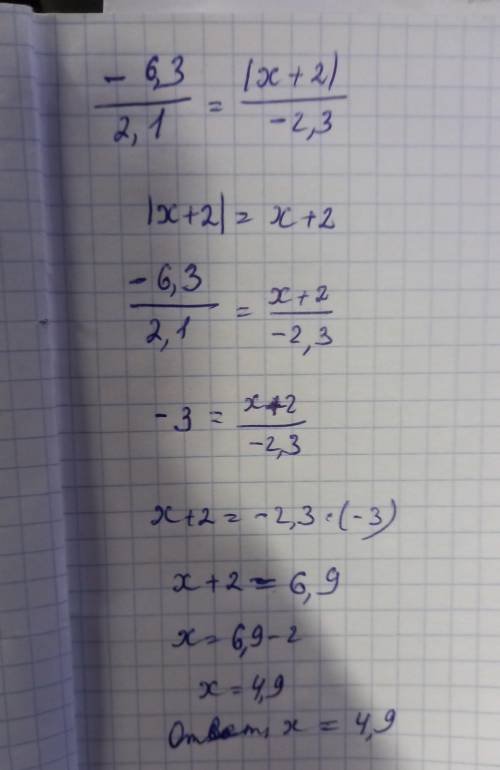 -6,3/2,1 = |x+2|/-2,3
|x+2| = x+2
-6,3/2,1 = x+2/-2,3
-3 = x+2/-2,3
x+2 = -2,3·(-3)
x+2 = 6,9
x = 6,9-2
x = 4,9
Ответ, x = 4,9